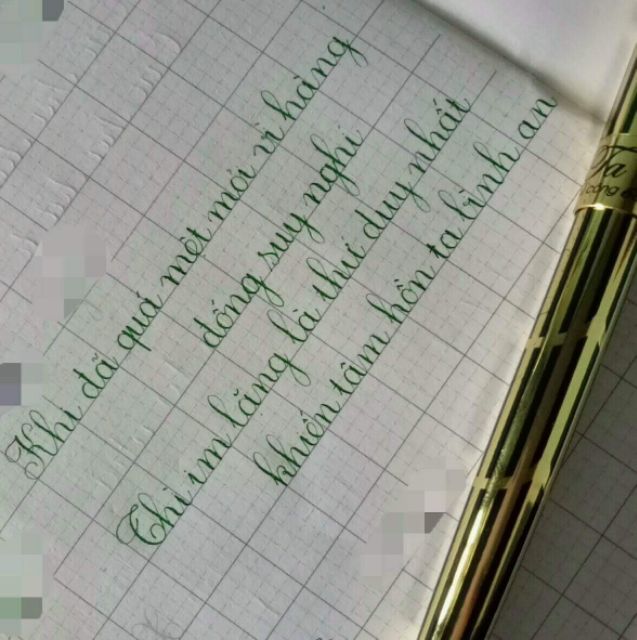 Khi đã quá mệt mỏi những
dòng suy nghĩ
Thì im lặng là thứ duy nhất
khiến tâm hồn ta bình an